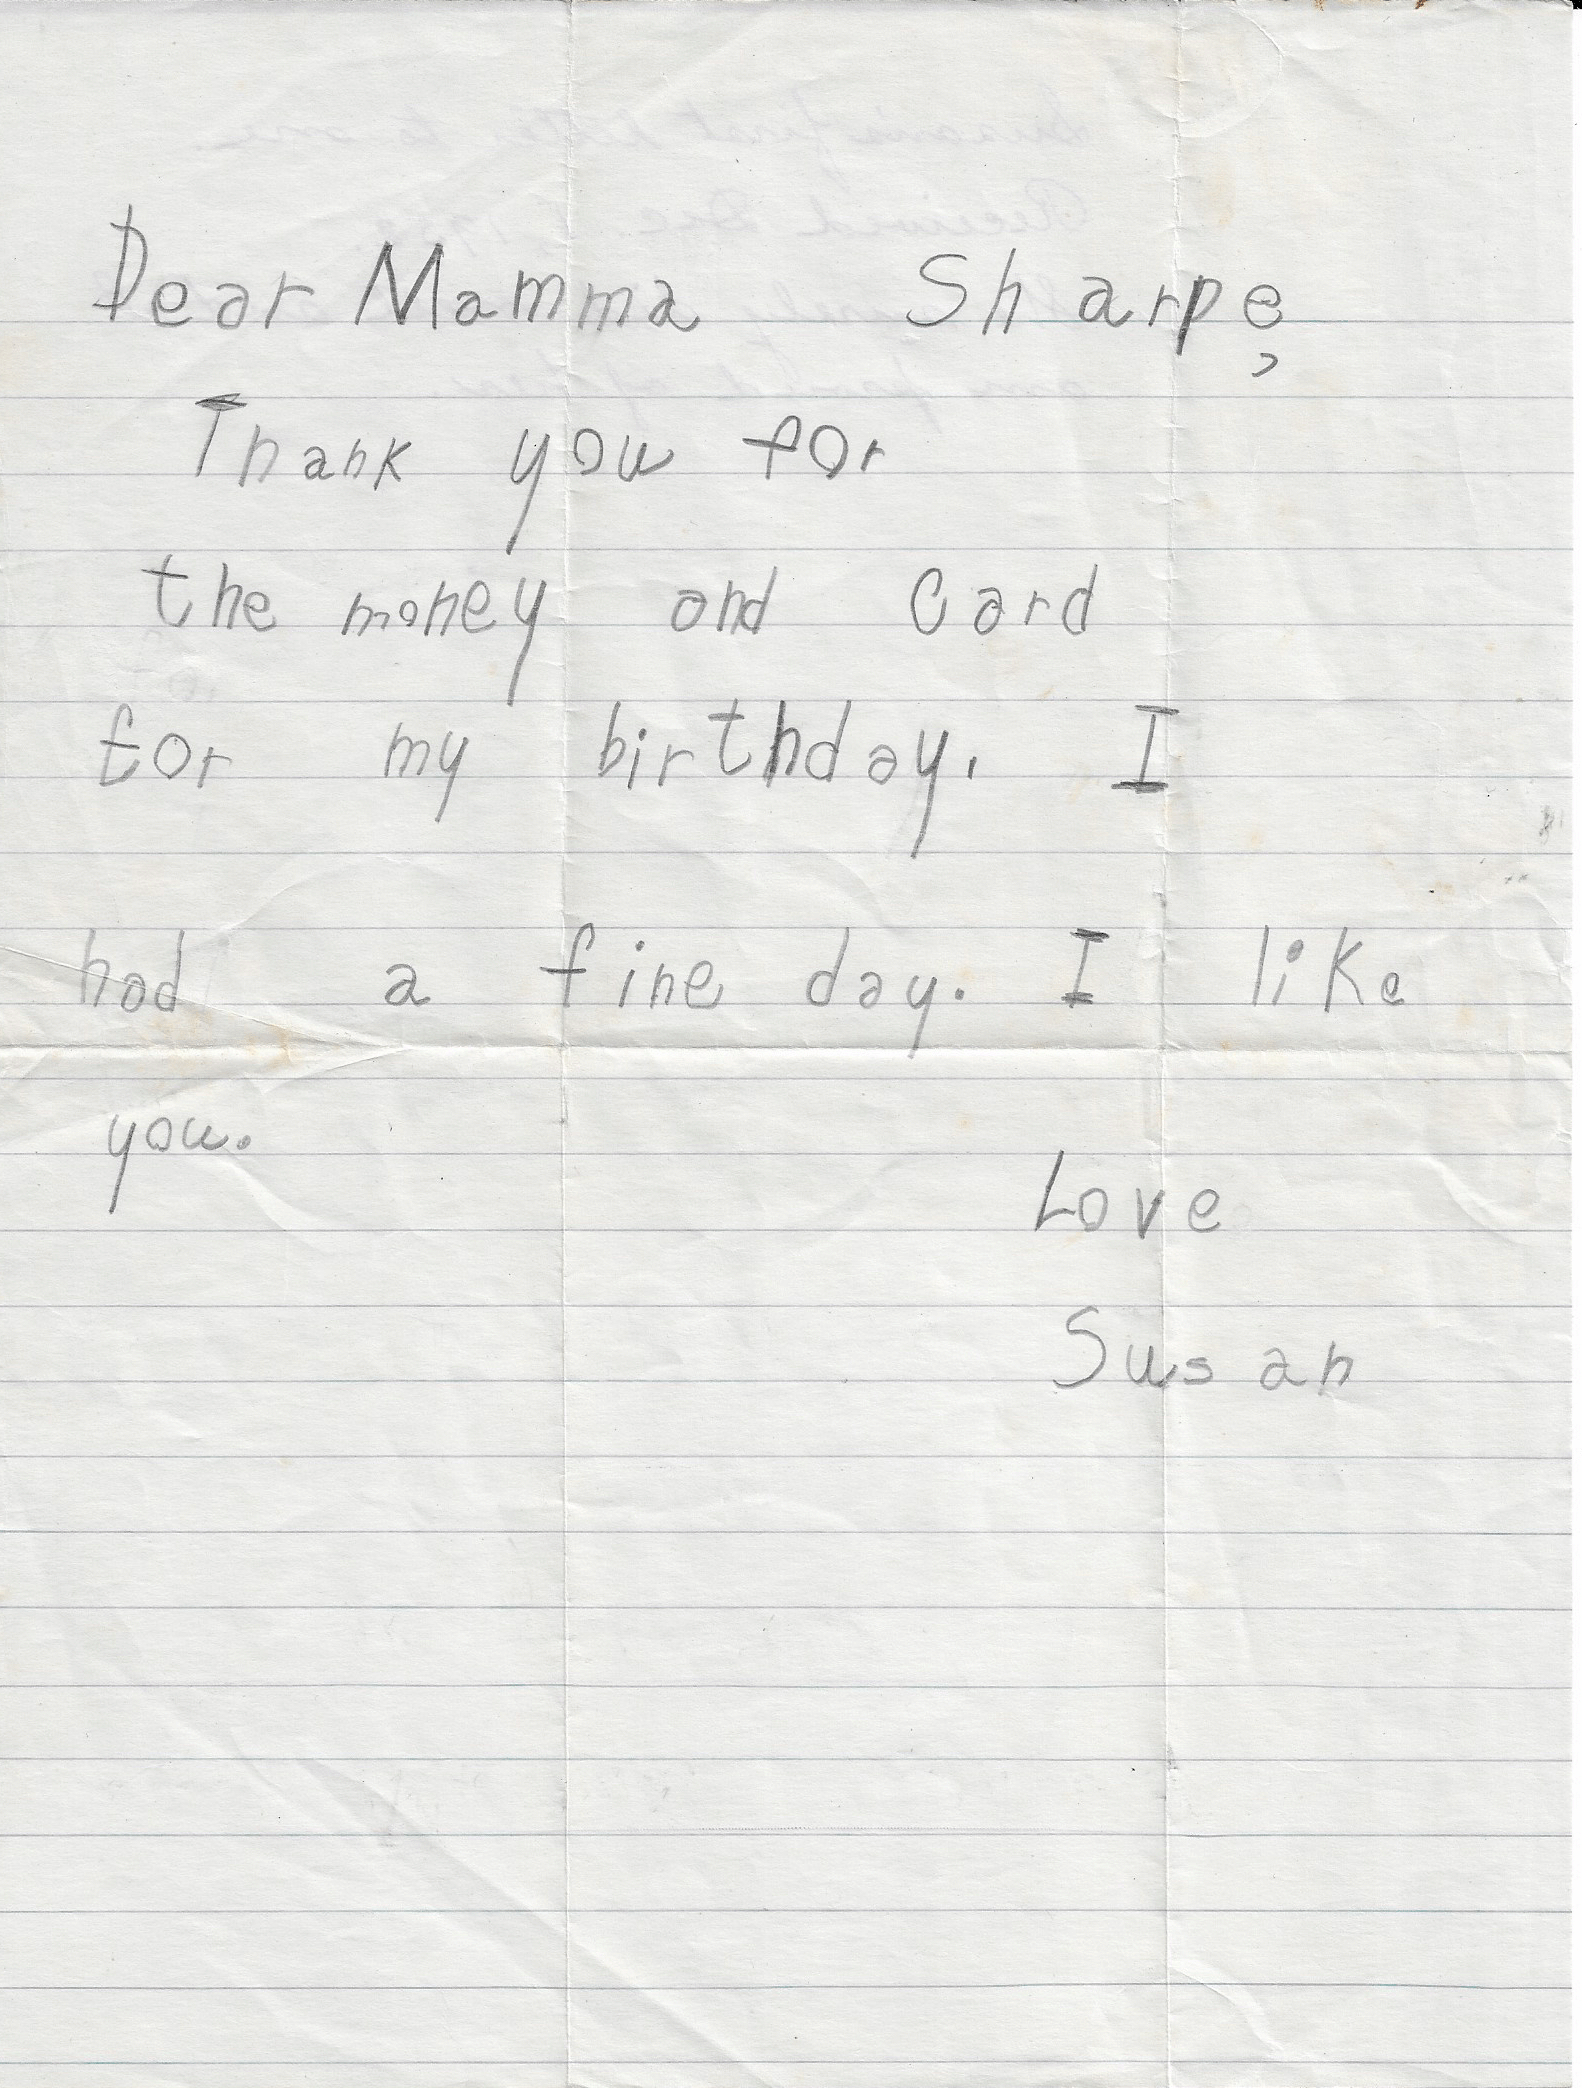 Dear Mamma Sharpe,
Thank you for
the money and card
for my birthday. I
had a fine day. I like
you.
Love
Susan